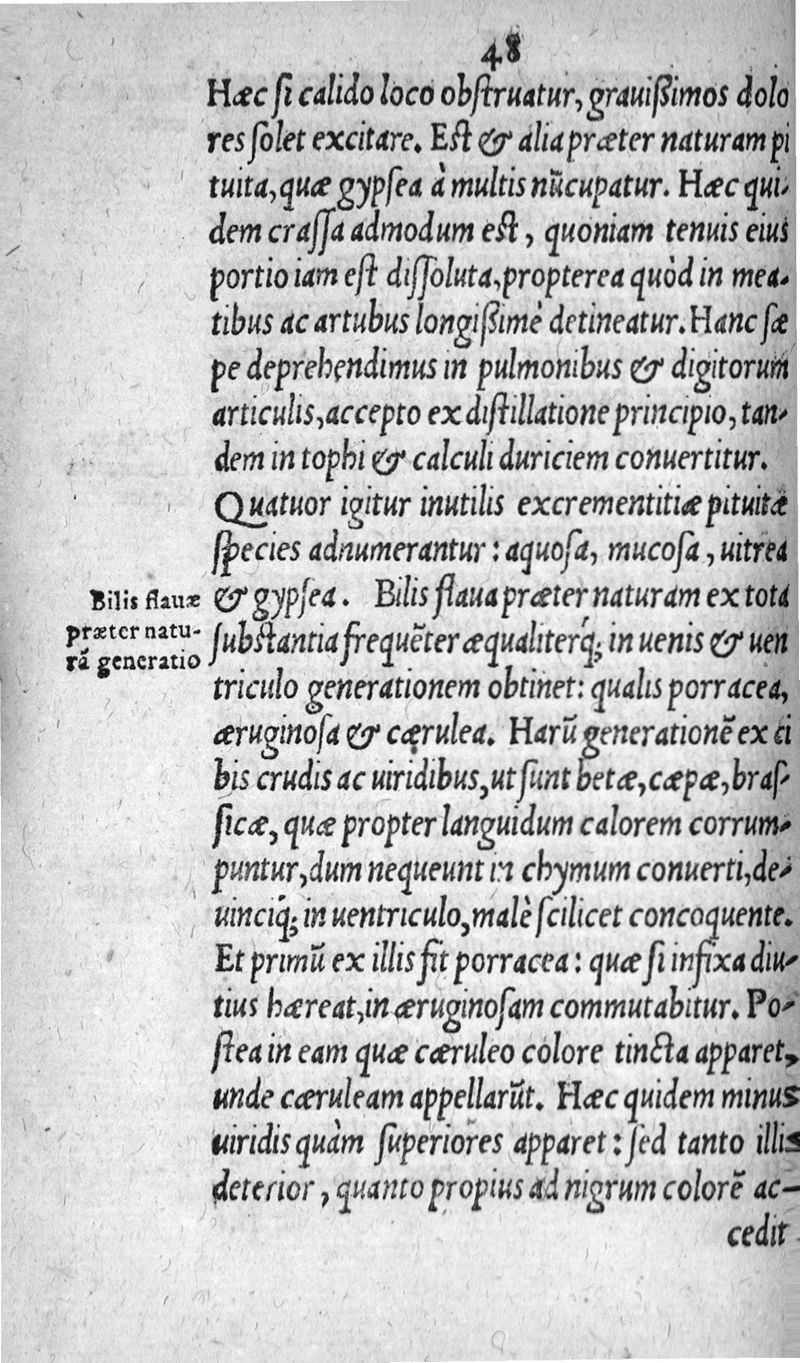 48
Hæc si calido loco obstruatur, grauißimos dolo
res solet excitare. Est & alia præter naturam pi
tuita, quæ gypsea à multis nũcupatur. Hæc qui-
dem crassa admodum est, quoniam tenuis eius
portio iam est dissoluta, propterea quòd in mea-
tibus ac artubus longißimè detineatur. Hanc sæ
pe deprehendimus in pulmonibus & digitorum
articulis, accepto ex distillatione principio, tan-
dem in tophi & calculi duriciem conuertitur.
Quatuor igitur inutilis excrementitiæ pituitæ
species adnumerantur: aquosa, mucosa, uitrea
& gypsea. Bilis flaua præter naturam ex tota
substantia frequẽter æqualiterq́; in uenis & uen
triculo generationem obtinet: qualis porracea,
æruginosa & cærulea. Harũ generationẽ ex ci
bis crudis ac uiridibus, ut sunt betæ, cæpæ, bras-
sicæ, quæ propter languidum calorem corrum-
puntur, dum nequeunt in chymum conuerti, de-
uinciq́; in uentriculo, malè scilicet concoquente.
Et primũ ex illis fit porracea: quæ si infixa diu-
tius hæreat, in æruginosam commutabitur. Po-
stea in eam quæ cæruleo colore tincta apparet,
unde cæruleam appellarũt. Hæc quidem minus
uiridis quàm superiores apparet: sed tanto illis
deterior, quanto propius ad nigrum colorẽ ac-
cedit
Bilis flauæ
præter natu-
rã generatio